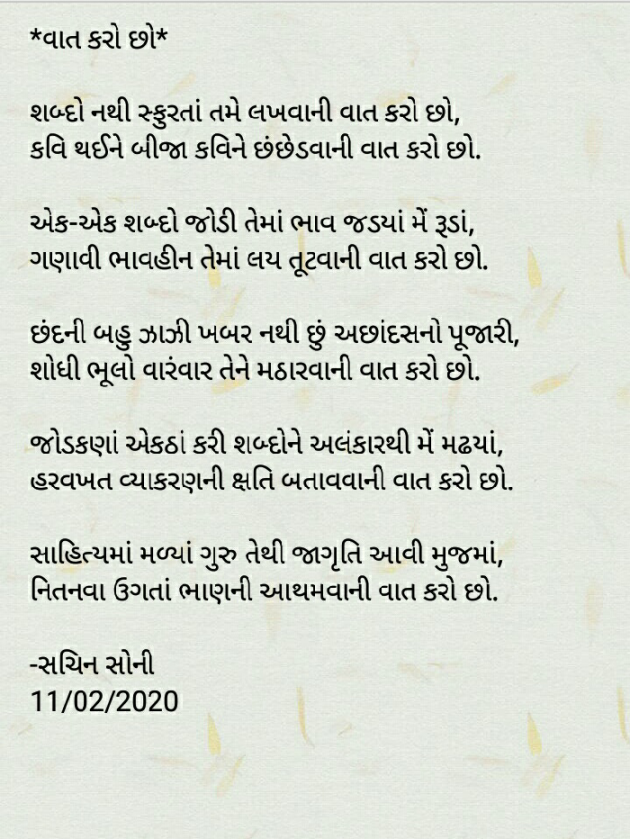 *વાત કરો છો*
શબ્દો નથી સ્ફુરતાં તમે લખવાની વાત કરો છો,
કવિ થઈને બીજા કવિને છંછેડવાની વાત કરો છો.
એક-એક શબ્દો જોડી તેમાં ભાવ જડયાં મેં રૂડાં,
ગણાવી ભાવહીન તેમાં લય તૂટવાની વાત કરો છો.
છંદની બહુ ઝાઝી ખબર નથી છું અછાંદસનો પૂજારી,
શોધી ભૂલો વારંવાર તેને મઠારવાની વાત કરો છો.
જોડકણાં એકઠાં કરી શબ્દોને અલંકારથી મેં મઢયાં,
હરવખત વ્યાકરણની ક્ષતિ બતાવવાની વાત કરો છો.
સાહિત્યમાં મળ્યાં ગુરુ તેથી જાગૃતિ આવી મુજમાં,
નિતનવા ઉગતાં ભાણની આથમવાની વાત કરો છો.
-સચિન સોની
11/02/2020